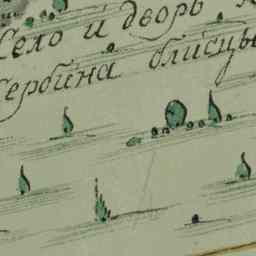 Село и дворъ
Сербина близцы